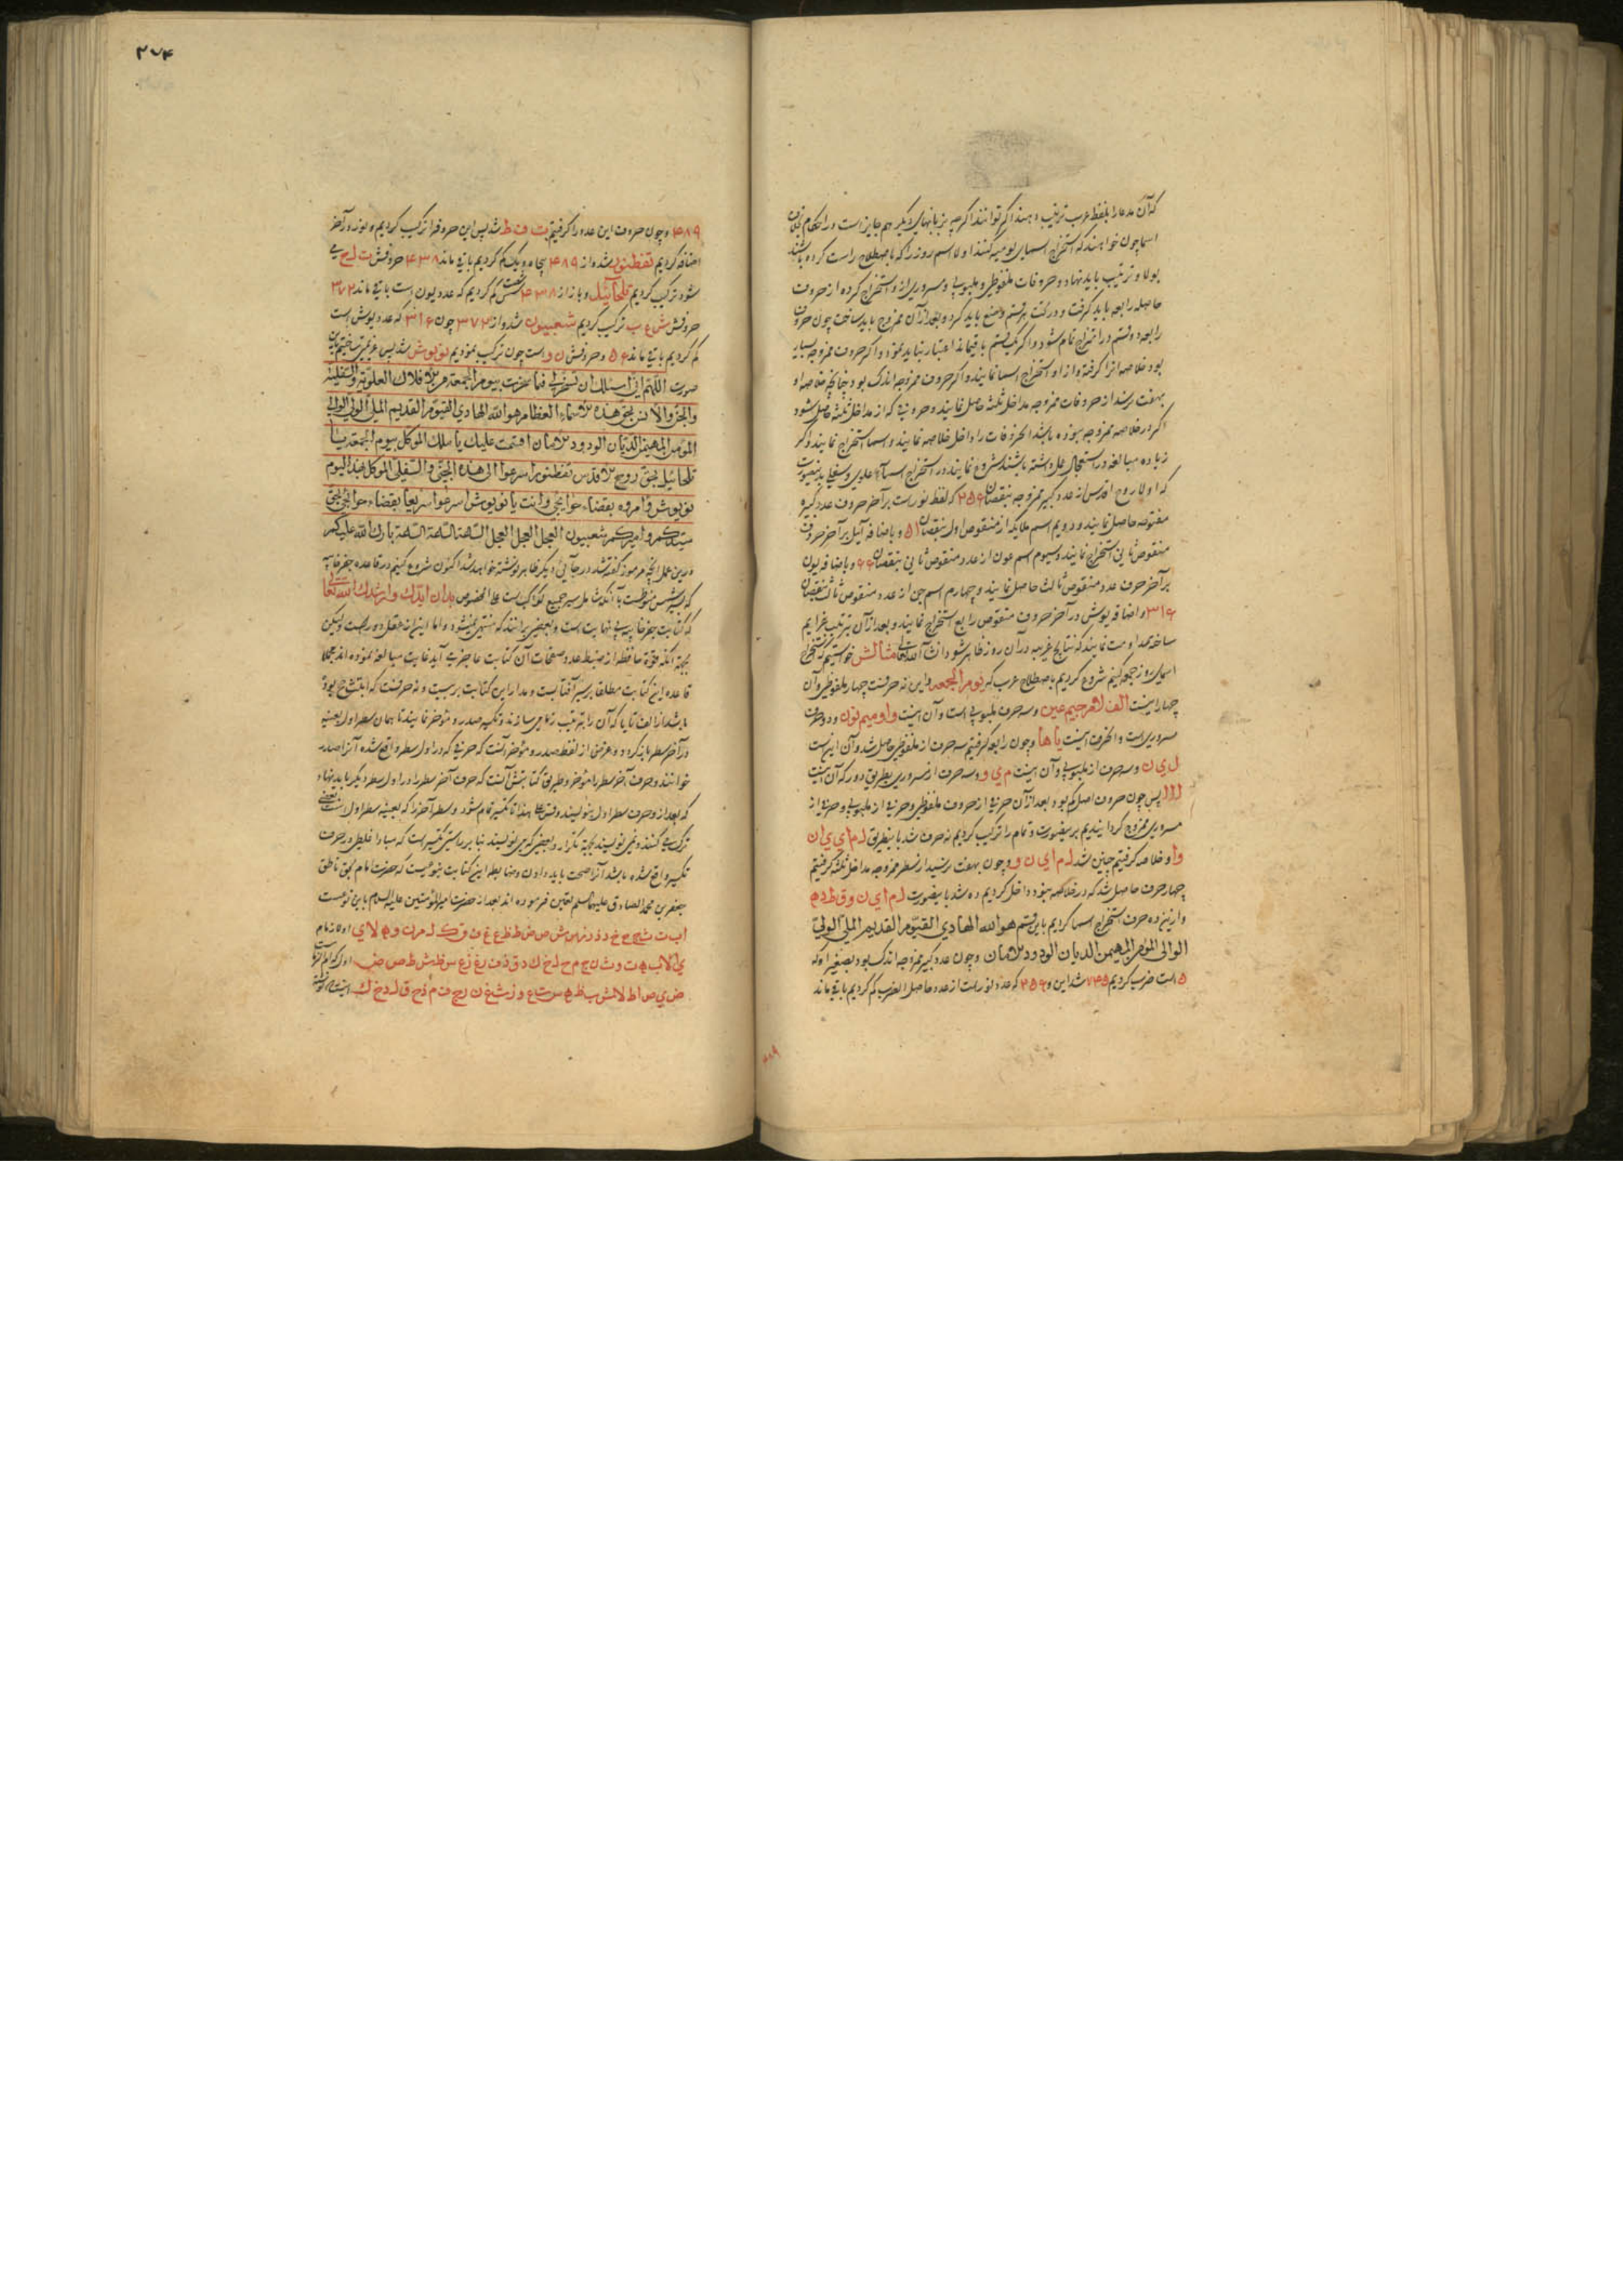 که آن مدعا را بلفظ عرب ترتیب دهند اگر توانند اگرچه بزبانهای دیگر هم جایز است و در احکام
اسما چون خواهند که استخراج اسمای یومیه کنند اولا اسم روز را که باصطلاح راست کرده باشند
بولا و ترتیب باید نهاد و حروفات ملفوظی و ملبوبی و مسروری از و استخراج کرده از حروف
حاصله رابعه باید گرفت و بعد از آن ممزوج باید ساخت چون حروف
رابعه دو قسم در امتزاج تمام شود و اگر یک قسم باقیماند اعتبار نباید نمود و اگر حروف ممزوجه بسیار
بود خلاصه انرا گرفته و از او استخراج اسما نمایند و اگر حروف ممزوجه اندک بود چنانچه خلاصه او
بهفت نرسد از حروفات ممزوجه مداخل ثلثه حاصل نمایند و حروفی که از مداخل ثلثه حاصل شود
اگر در خلاصه ممزوجه نبوده باشد الحروفات را داخل خلاصه نمایند و اسما استخراج نمایند و اگر
زیاده مبالغه در استعجال عمل داشته باشند شروع نمایند در استخراج اسماء علوی و سفلی بدینصورت
که اولا روح اقدس از عدد کبیر ممزوجه بنقصان ۲۵۶ که لفظ نور است بر آخر حروف عدد کبیره
منقوصه حاصل نمایند و دویم اسم ملایکه از منقوص اول بنقصان ۵۱ و باضافه آئیل بر آخر حروف
منقوص ثانی استخراج نمایند و سیوم اسم عون از عدد منقوص ثانی بنقصان ۶۶ و باضافه یون
بر آخر حرف عدد منقوص ثالث حاصل نمایند و چهارم اسم جن از عدد منقوص ثالث بنقصان
۳۱۶ و اضافه یوش در آخر حروف منقوص رابع استخراج نمایند و بعد از آن ترتیب عزایم
ساخته مداومت نمایند که نتایج غریبه در آن روز ظاهر شود ان شاء الله تعالی مثالش خواستیم که استخراج
اسمای روز جمعه کنیم شروع کردیم باصطلاح عرب که یوم الجمعه و این نه حرفست چهار ملفوظی و آن
چهار اینست الف لام جیم عین و سه حرف ملبوبی است و آن اینست واو میم نون و دو حرف
مسروری است و الحرف اینست یا ها و چون رابعه گرفتیم سه حرف از ملفوظی حاصل شد و آن اینست
ل ی ن و سه حرف از ملبوبی و آن اینست م ی و و سه حرف از مسروری بطریق دور که آن اینست
ا ا ا پس چون حروف اصل کم بود بعد از آن حرفی از حروف ملفوظی و حرفی از ملبوبی و حرفی از
مسروری ممزوج گردانیدیم بر ینصورت و تمام را ترکیب کردیم نه حرف شد باینطریق ل م ا ی ی ا ن
و ا و خلاصه گرفتیم چنین شد ل م ا ی ن و و چون بهفت نرسید از سطر ممزوجه مداخل ثلثه گرفتیم
چهار حرف حاصل شد که در خلاصه نبود داخل کردیم ده شد باینصورت ل م ا ی ن و ق ط د ه
و از ین ده حرف استخراج اسما کردیم باین قسم هو الله الهادی القیوم القدیم الملی الولی
الوالی المؤمن المهیمن الدیان الودود الامان و چون عدد کبیر ممزوجه اندک بود بصغیر او که
۵ است ضرب کردیم ۷۴۵ شد این و ۲۵۶ که عدد نور است از عدد حاصل الضرب کم کردیم باقی ماند
۴۸۹
۲۷۴
۴۸۹ و چون حروف این عدد را گرفتیم ت ف ط شد پس این حروف را ترکیب کردیم و نور در آخر
اضافه کردیم تفطنور شد و از ۴۸۹ پنجاه و یک کم کردیم باقی ماند ۴۳۸ حروفش ت ل ح می
شود ترکیب کردیم تلحائیل و باز از ۴۳۸ شصت و شش کم کردیم که عدد یون است باقی ماند ۳۷۲
حروفش ش ع ب ترکیب کردیم شعبیون شد و از ۳۷۲ چون ۳۱۶ که عدد یوش است
کم کردیم باقی ماند ۵۶ و حروفش ن و است چون ترکیب نمودیم نویوش شد پس عزیمت ساختیم باین
صورت اللهم انی اسئلک ان تسخر لی فیما عزمت بیوم الجمعة من الافلاک العلویة والسفلیة
والجن والانس بحق هذه الاسماء العظام هو الله الهادی القیوم القدیم الملی الولی الوالی
المؤمن المهیمن الدیان الودود الامان اقسمت علیک یا ملک الموکل بیوم الجمعة یا
تلحائیل بحق روح الاقدس تفطنور اسرعوا الی هذه الجنی والسفلی الموکل بهذا الیوم
نویوش وامروه بقضاء حوائجی وانت یا نویوش اسرعوا سریعا بقضاء حوائجی بحق
سیدکم وامیرکم شعبیون العجل العجل العجل الساعة الساعة الساعة بارک الله علیکم
و درین عمل انچه مرموز گفته شد در جائی دیگر ظاهر نوشته خواهد شد اکنون شروع کنیم در قاعده جفر خافیه
که بسیر شمس منوطست با آنکه شامل سیر جمیع کواکب است علی الخصوص بدان ایدک وارشدک الله تعالی
که کتابت جفر خافیه بی نهایت است و بعضی برانند که منتهی نمیشود و اما این از عقل دور است ولیکن
بجهة آنکه قوة حافظه از ضبط عدد صفحات آن کتابت عاجز می آید غایت مبالغه نموده اند مجملا
قاعده این کتابت مطلقا بر سیر آفتابست و مدار این کتابت بر بیست و نه حرفست که ابتثج بوده
باشد از الف تا یا که آن را بترتیب زمام میسازند و تکسیر صدر و مؤخر نمایند تا همان سطر اول بعینه
در آخر سطر باز گردد و غرض از لفظ صدر و مؤخر آنست که حرفی که در اول سطر واقع شده آنرا صدر
خوانند و حرف آخر سطر را مؤخر و طریق کتابتش آنست که حرف آخر سطر را در اول سطر دیگر باید نهاد
که بعد از و حرف سطر اول بنویسند وقس علی هذا تا تکسیر تمام شود و سطر آخر را که بعینه سطر اول است بعضی
ترک میکنند و نمی نویسند بجهة تکرار و بعضی که می نویسند بنا بر راستی تکسیر است که مبادا غلطی در حرف
تکسیر واقع شده باشد آنرا صحت باید دادن و ضابطه این کتابت بنوعیست که حضرت امام بحق ناطق
جعفر بن محمد الصادق علیهما السلم تعیین فرموده اند بعد از حضرت امیر المؤمنین علیه السلام باین نوعست
ا ب ت ث ج ح خ د ذ ر ز س ش ص ض ط ظ ع غ ف ق ک ل م ن و ه لا ی اولا زمام
ی ا لا ب ه ت و ث ن ج م ح ل خ ک د ق ذ ف ر غ ز ع س ظ ش ط ص ض
ض ی ص ا ط لا ش ب ظ ه س ت ع و ز ث غ ن ر ج ف م ذ ح ق ل د خ ک